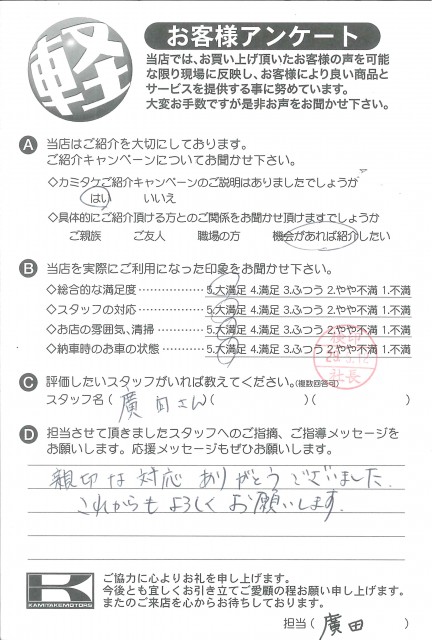 軽
お客様アンケート
当店では、お買い上げ頂いたお客様の声を可能
な限り現場に反映し、お客様により良い商品と
サービスを提供する事に努めています。
大変お手数ですが是非お声をお聞かせ下さい。
A 当店はご紹介を大切にしております。
ご紹介キャンペーンについてお聞かせ下さい。
◇カミタケご紹介キャンペーンのご説明はありましたでしょうか
はい いいえ
◇具体的にご紹介頂ける方とのご関係をお聞かせ頂けますでしょうか
ご親族 ご友人 職場の方 機会があれば紹介したい
B 当店を実際にご利用になった印象をお聞かせ下さい。
◇総合的な満足度 5.大満足 4.満足 3.ふつう 2.やや不満 1.不満
◇スタッフの対応 5.大満足 4.満足 3.ふつう 2.やや不満 1.不満
◇お店の雰囲気、清掃 5.大満足 4.満足 3.ふつう 2.やや不満 1.不満
◇納車時のお車の状態 5.大満足 4.満足 3.ふつう 2.やや不満 1.不満
検印
社長
C 評価したいスタッフがいれば教えてください。(複数回答可)
スタッフ名(廣田さん)( )( )
D 担当させて頂きましたスタッフへのご指摘、ご指導メッセージを
お願いします。応援メッセージもぜひお願いします。
親切な対応 ありがとうございました.
これからも よろしく お願いします.
K
KAMITAKE MOTORS
ご協力に心よりお礼を申し上げます。
今後とも宜しくお引き立てご愛顧の程お願い申し上げます。
またのご来店を心からお待ちしております。
担当( 廣田 )